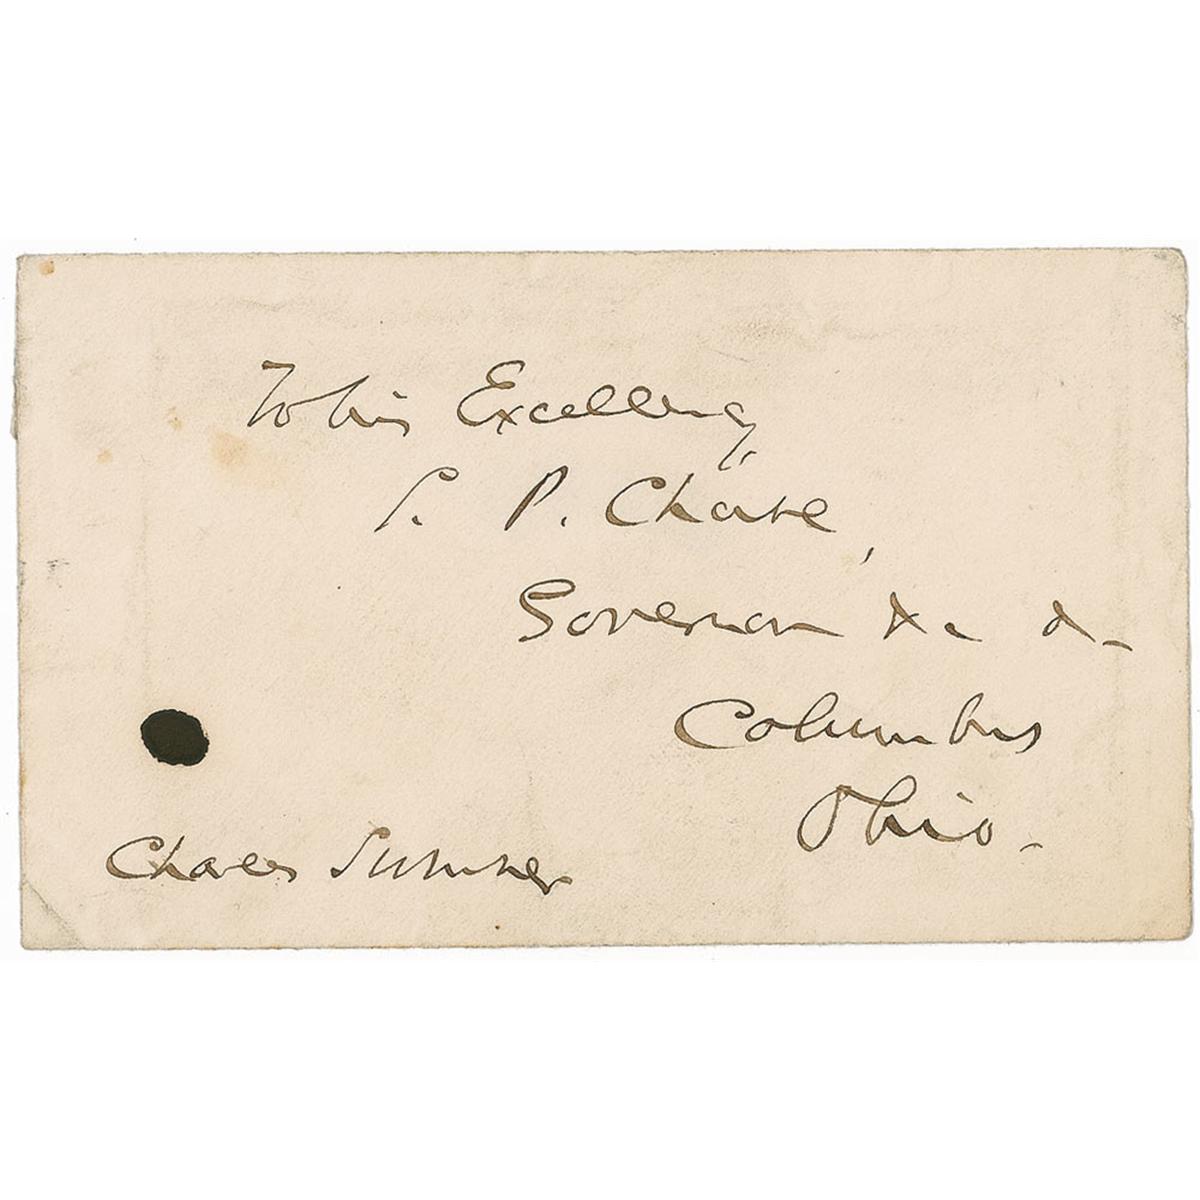 To his Excellency,
S. P. Chase,
Governor &c &-
Columbus
Ohio.
Charles Sumner